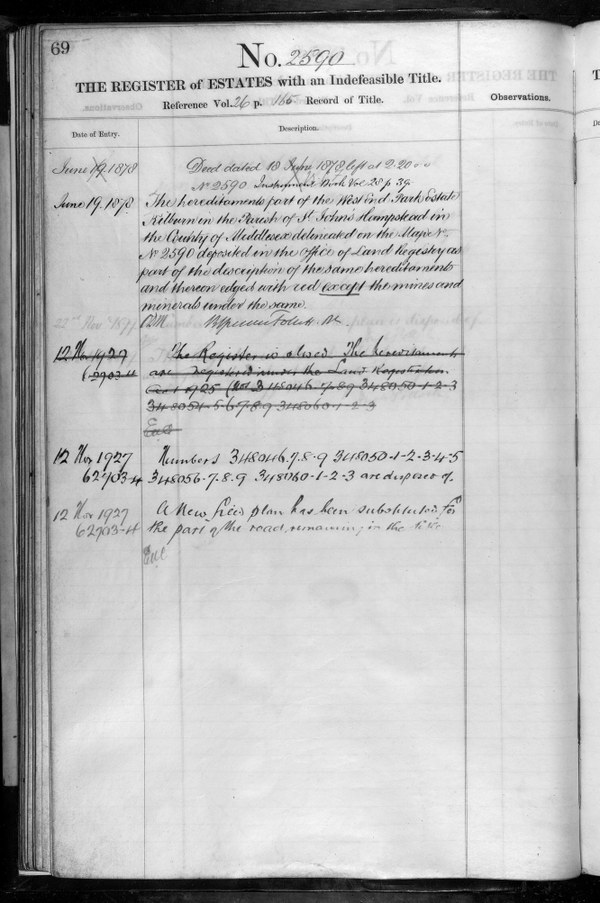 69
No. 2590
THE REGISTER of ESTATES with an Indefeasible Title.
Reference Vol. 26 p. 165 Record of Title.
Observations.
Date of Entry.
Description.
June 19. 1878
Deed dated 18 June 1878, left at 2.20
No 2590 Instrument Book Vol 28 p 39.
June 19. 1878.
The hereditaments part of the West End Park Estate
Kilburn in the Parish of St John's Hampstead in
the County of Middlesex delineated on the Map No.
No 2590 deposited in the Office of Land Registry as
part of the description of the same hereditaments
and thereon edged with red except the mines and
minerals under the same.
12 Nov 1927
62903-4
The Register is closed. The hereditaments
are registered under the Land Registration
Act 1925 348046.7.8.9 348050-1-2-3
348054-5-6-7-8-9 348060-1-2-3
12 Nov 1927
62903-4
Numbers 348046.7.8.9 348050-1-2-3-4-5
348056-7-8-9 348060-1-2-3 are disposed of.
12 Nov 1927
62903-4
A New filed plan has been substituted for
the part of the road remaining in the title